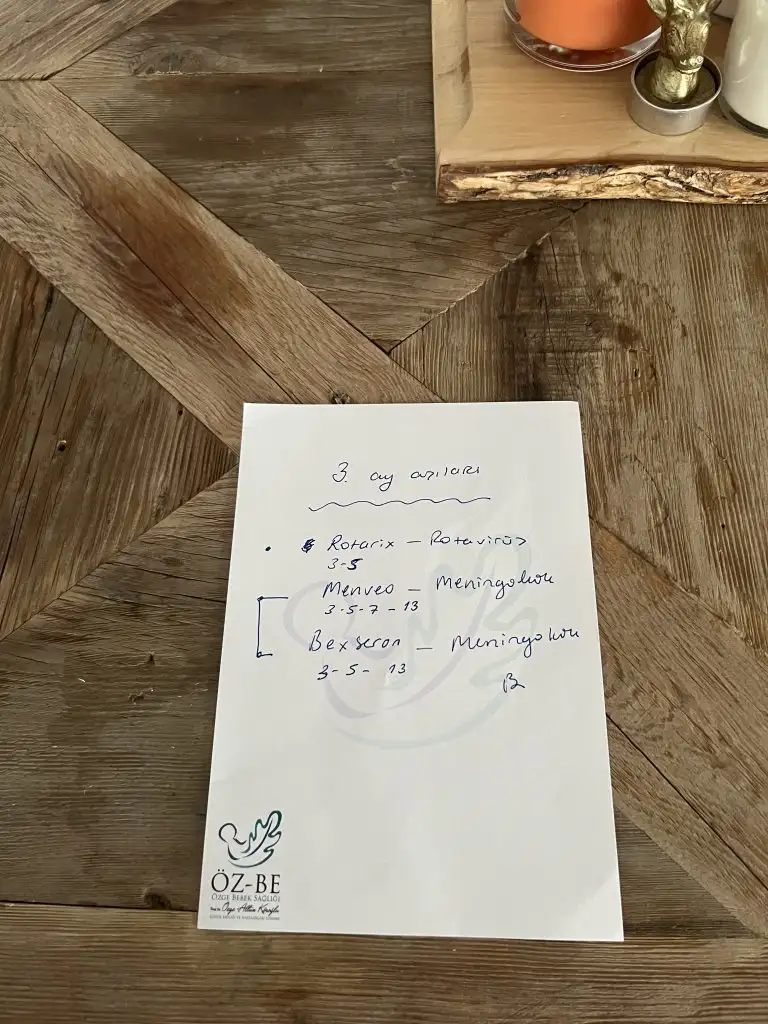 3. ay aşıları
Rotarix – Rotavirüs
3-5
Menveo – Meningokok
3-5-7-13
Bexseron – Meningokok
3-5-13
B
ÖZ-BE
ÖZGE BEBEK SAĞLIĞI
Özge Altun Köroğlu